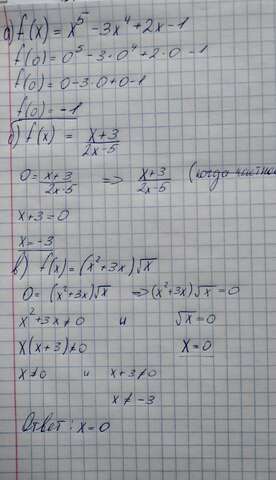 а) f(x) = x⁵ - 3x⁴ + 2x - 1
f(0) = 0⁵ - 3·0⁴ + 2·0 - 1
f(0) = 0 - 3·0 + 0 - 1
f(0) = -1
б) f(x) = (x+3)/(2x-5)
0 = (x+3)/(2x-5) ⇒ (x+3)/(2x-5) (когда
x+3=0
x=-3
в) f(x) = (x²+3x)√x
0 = (x²+3x)√x ⇒ (x²+3x)√x = 0
x²+3x≠0 и √x=0
x(x+3)≠0 x=0
x≠0 и x+3≠0
x≠-3
Ответ: x=0